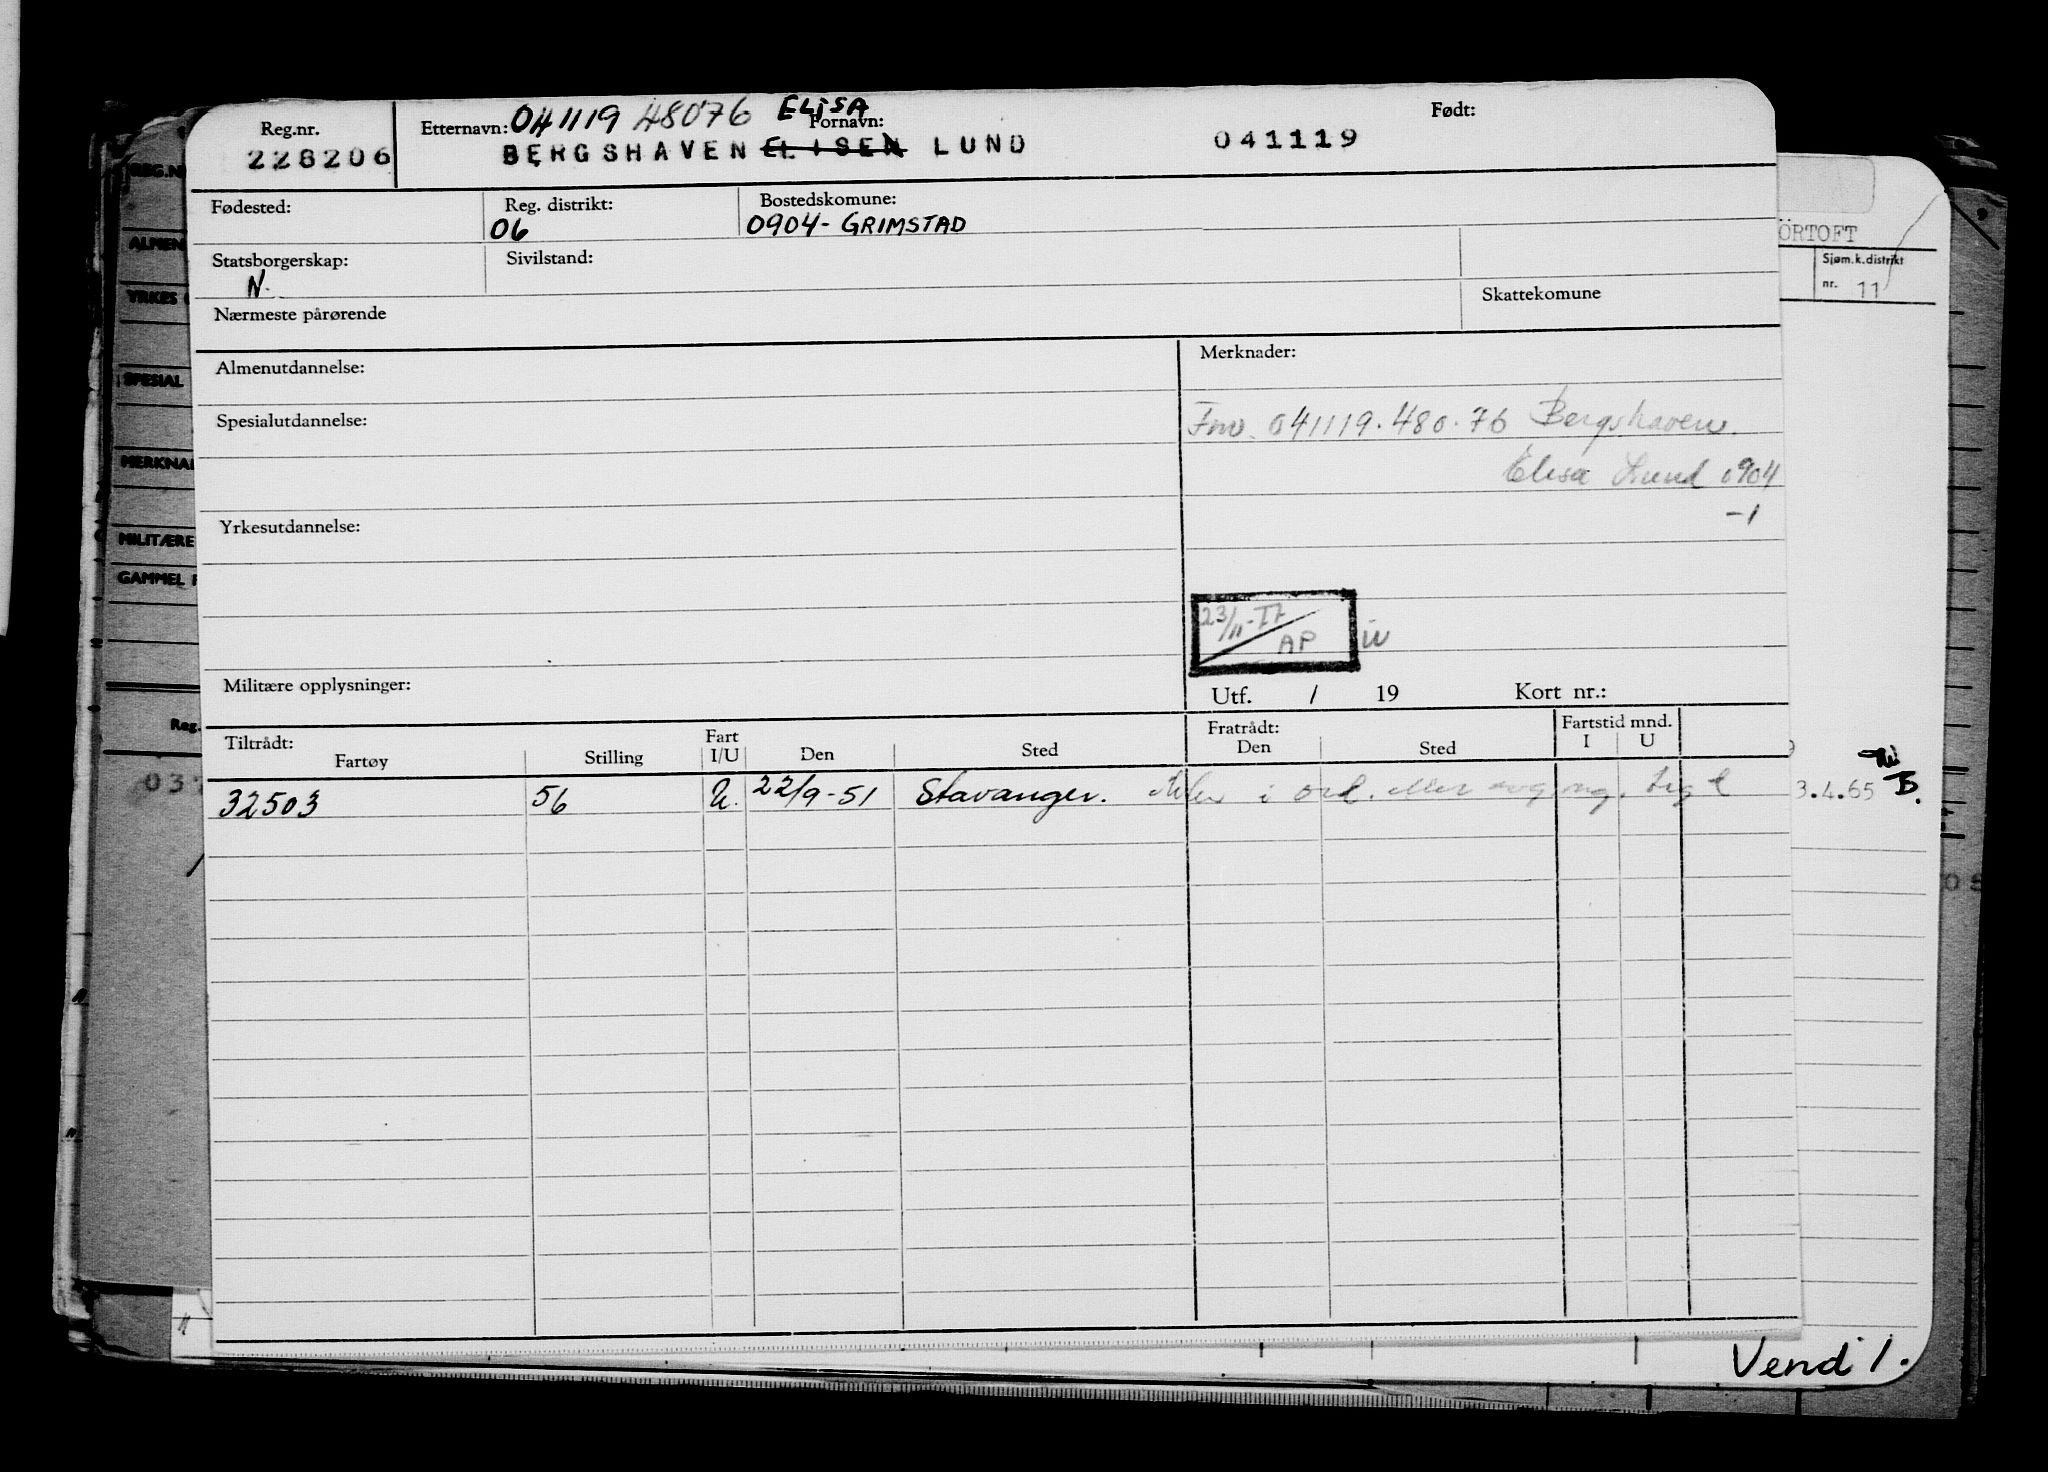 Reg.nr.
228206
Etternavn: 041119 48076 ELISA
Fornavn:
Født:
BERGSHAVEN ELISEN LUND 041119
Fødested:
Reg. distrikt:
06
Bostedskomune:
0904 - GRIMSTAD
Statsborgerskap:
N.
Sivilstand:
Nærmeste pårørende
Skattekomune
Almenutdannelse:
Merknader:
Spesialutdannelse:
Fnv. 041119.480.76 Bergshaven
Elisa Lund 0904
-1
Yrkesutdannelse:
23/11-77
AP
Militære opplysninger:
Utf. / 19 Kort nr.:
Tiltrådt:
Fartøy
Stilling
Fart
I/U
Den
Sted
Fratrådt:
Den
Sted
Fartstid mnd.
I U
32503 56 U. 22/9-51 Stavanger.
ÖRTOFT
Sjøm.k.distrikt
nr. 11
3.4.65
B.
REG.N
ALMEN
YRKES
SPESIAL
MERKNA
MILITÆRE
GAMMEL
Reg.
03
05
Vend!.